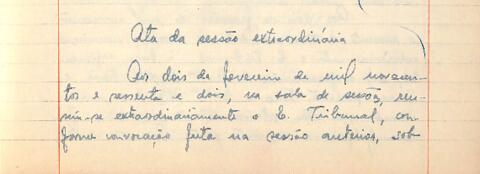 Ata da sessão extraordinária
Aos dois de fevereiro de mil novecen-
tos e sessenta e dois, na sala de sessões, reu-
niu-se extraordinariamente o E. Tribunal, con-
forme convocação feita na sessão anterior, sob